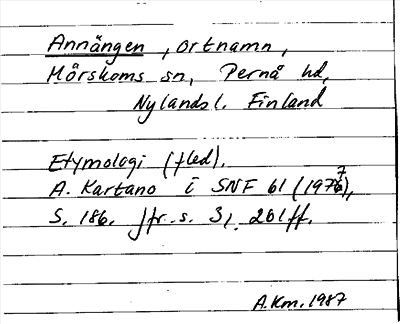 Annängen, ortnamn,
Mörskoms sn, Pernå hd,
Nylands l. Finland
Etymologi (fled).
A. Kartano i SNF 61 (1977),
S. 186. Jfr. s. 31, 201 ff.
A.Km. 1987